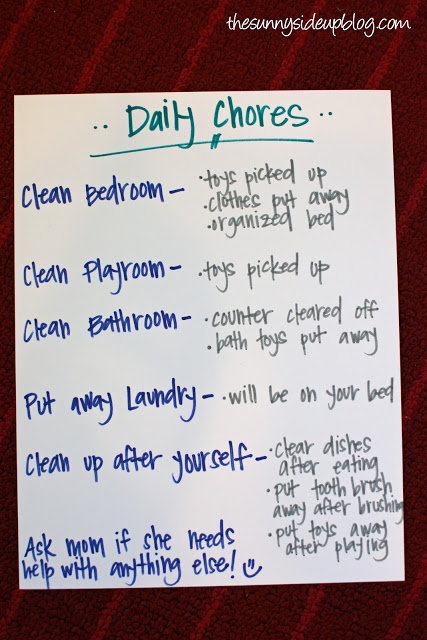 thesunnysideupblog.com
·· Daily Chores ··
Clean Bedroom - · toys picked up
· clothes put away
· organized bed
Clean Playroom - · toys picked up
Clean Bathroom - · counter cleared off
· bath toys put away
Put away Laundry - · will be on your bed
Clean up after yourself - · clear dishes
after eating
· put toothbrush
away after brushing
· put toys away
after playing
Ask mom if she needs
help with anything else! ☺